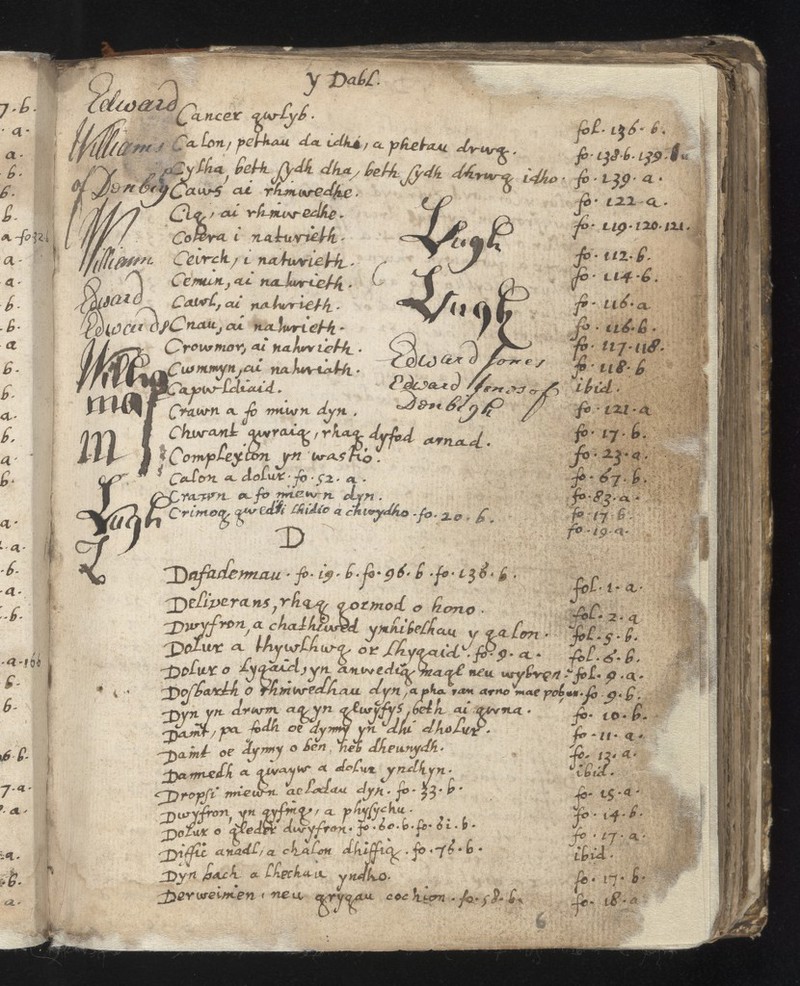 y Dabl.
Edward
Cancer gwlyb. fol. 136. b.
Williams Calon, pethau da idhi, a phetau drwg. fo. 138. b. 139.
Cylha, beth sydh dha, beth sydh dhrwg idho. fo. 139. a.
of Denbig Caws ai rhinwedhe. fo. 122. a.
W Cig, ai rhinwedhe. fo. 119. 120. 121.
i naturieth. Lugh
William Ceirch, i naturieth. fo. 112. b.
Cennin, ai naturieth. fo. 114. b.
Edward Cawl, ai naturieth. Lugh fo. 116. a
Edwards Cnau, ai naturieth. fo. 116. b.
Crowmor, ai naturieth. Edward Jones fo. 117. 118.
Willia Cwmmyn, ai naturiath. fo. 118. b
Capwldiaid. Edward Jones of ibid.
mas Crawn a fo miwn dyn. Denbigh fo. 121. a
Chwant gwraig, rhag dyfod arnad. fo. 17. b.
m Complexion yn wastio. fo. 23. a.
Calon a dolur. fo. 52. a. fo. 67. b.
Crawn a fo miewn dyn. fo. 83. a.
Lugh Crimog gwedi lhidio a chwydho. fo. 20. b. fo. 17. b.
fo. 19. a.
D
L
Dafadennau. fo. 19. b. fo. 96. b. fo. 136. b.
Deliverans, rhag gormod o hono. fol. 1. a.
Dwyfron, a chathiwed ymhibelhau y galon. fol. 2. a
Dolur a thywlhwg or lhygaid. fo. 9. a. fol. 5. b.
Dolur o lygaid, yn anwedig magl neu wybren. fol. 6. b.
Dosbarth o rhinwedhau dyn, a pha ran arno mae pob un. fol. 9. a.
Dyn yn drwm ag yn glwyfys, beth ai gwna. fo. 9. b.
Daint, pa fodh oe dynny yn dhi dholur. fo. 10. b.
Daint oe dynny o ben heb dheunydh. fo. 11. a.
Dannedh a gwayw a dolur yndhyn. fo. 13. a.
Dropsi miewn aelodau dyn. fo. 33. b. ibid.
Dwyfron, yn gyfing, a physychu. fo. 15. a.
Dolur o gledr dwyfron. fo. 60. b. fo. 61. b. fo. 14. b.
Diffic anadl, a chalon dhiffig. fo. 76. b. fo. 17. a.
Dyn bach a lhechau yndho. ibid.
Derweinien, neu grygau cochion. fo. 58. b. fo. 17. b.
fo. 18. a
6